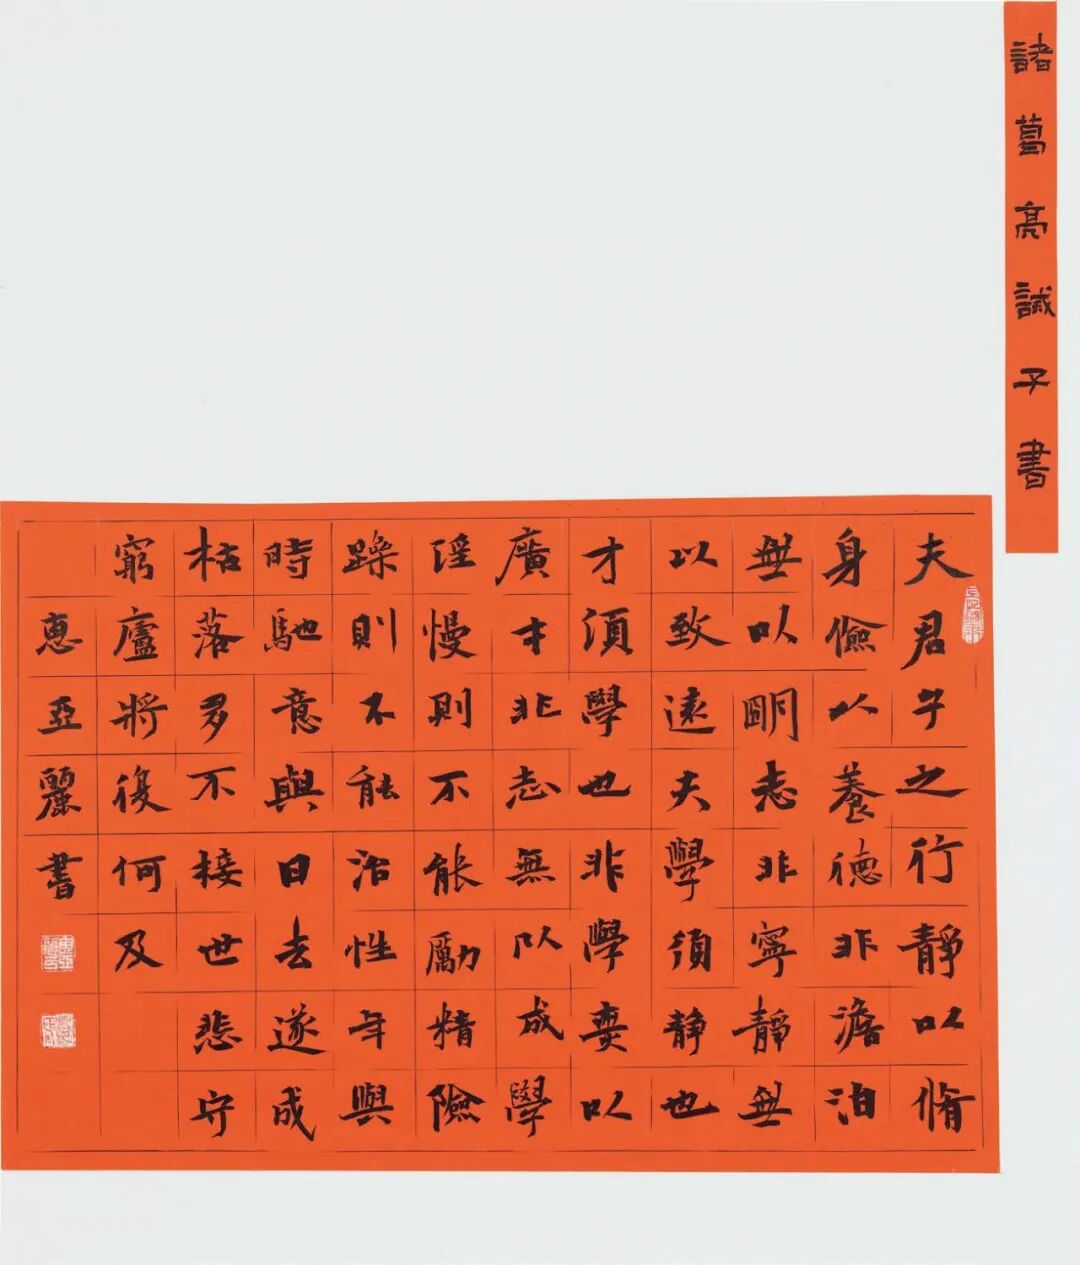 諸葛亮誡子書
夫君子之行靜以脩
身儉以養德非澹泊
無以明志非寧靜無
以致遠夫學須静也
才須學也非學奕以
廣才非志無以成學
淫慢則不能勵精險
躁則不能治性年與
時馳意與日去遂成
枯落多不接世悲守
窮廬將復何及
惠亞麗書